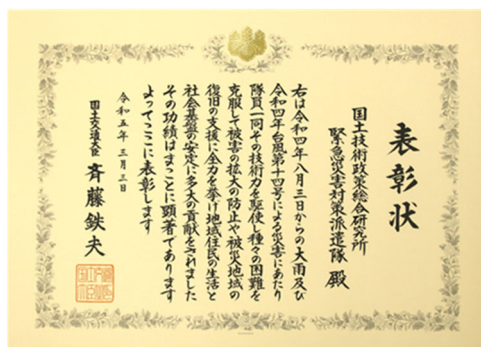 表彰状
国土技術政策総合研究所
緊急災害対策派遣隊 殿
右は令和四年八月三日からの大雨及び
令和四年台風第十四号による災害にあたり
隊員一同その技術力を駆使し種々の困難を
克服して被害の拡大の防止や被災地域の
復旧の支援に全力を挙げ地域住民の生活と
社会基盤の安定に多大の貢献をされました
その功績はまことに顕著であります
よってここに表彰します
令和五年三月三日
国土交通大臣 斉藤鉄夫